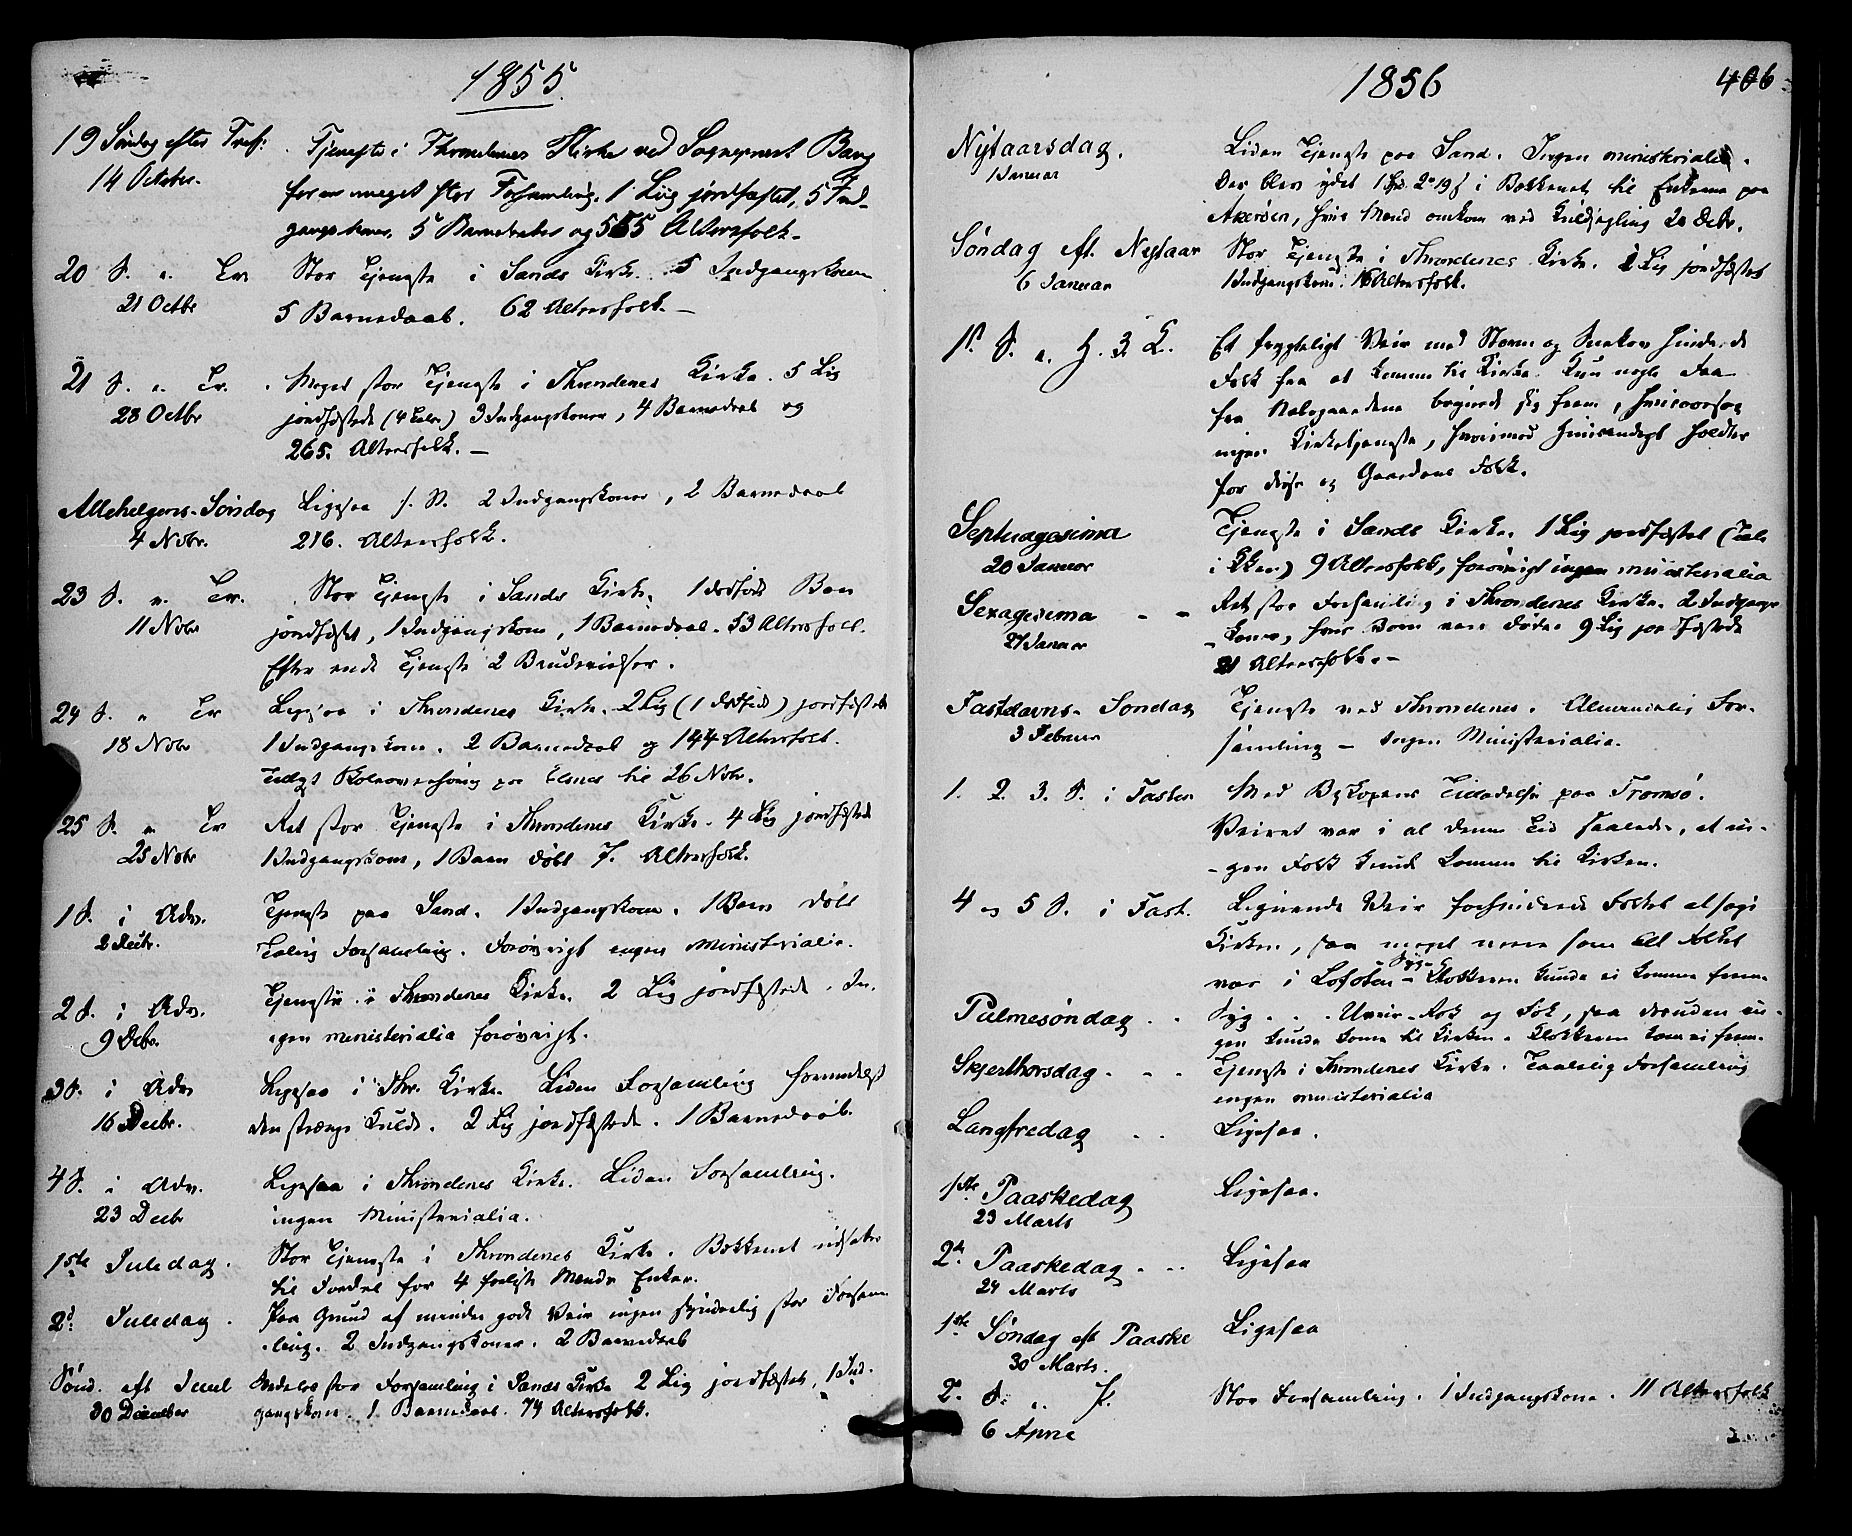 1855.
19 Søndag efter Tref:
14 October.
Tjeneste i Throndenes Kirke ved Sogneprest Bang
for en meget stor Forsamling. 1 Liig jordfæstet, 5 Ind-
gangskoner. 5 Barnedaab og 555 Altersfolk.
20 S. e. Tr
21 Octbr
Stor Tjeneste i Sands Kirke. 5 Indgangskoner
5 Barnedaab. 62 Altersfolk. —
21 S. e. Tr.
28 Octbr
Meget stor Tjeneste i Throndenes Kirke. 5 Lig
jordfæstede (4 Taler) 3 Indgangskoner, 4 Barnedaab og
265. Altersfolk. —
Allehelgens-Søndag
4 Novbr.
Ligesaa s. St. 2 Indgangskoner, 2 Barnedaab
216. Altersfolk.
23 S. e. Tr.
11 Novbr
Stor Tjeneste i Sands Kirke. 1 dødfødt Barn
jordfæstet, 1 Indgangskone, 1 Barnedaab. 53 Altersfolk.
Efter endt Tjeneste 2 Brudevielser.
24 S. e. Tr
18 Novbr
Ligesaa i Throndenes Kirke. 2 Lig (1 dødfødt) jordfæstede
1 Indgangskone. 2 Barnedaab og 144 Altersfolk.
paa Elsnes til 26 Novbr.
25 S. e. Tr
25 Novbr
Ret stor Tjeneste i Throndenes Kirke. 4 Lig jordfæstede
1 Indgangskone, 1 Barn døbt 7. Altersfolk.
1 S. i Adv.
2 Decbr.
Tjeneste paa Sand. 1 Indgangskone. 1 Barn døbt
Talrig Forsamling. Forøvrigt ingen ministerialia.
2 S. i Adv.
9 Decbr.
Tjeneste i Throndenes Kirke. 2 Lig jordfæstede. In-
gen ministerialia forøvrigt.
3 S. i Adv
16 Decbr.
Ligesaa i Thr. Kirke. Liden Forsamling formedelst
den strænge Kulde. 2 Lig jordfæstede. 1 Barnedaab.
4 S. i Adv.
23 Decbr
Ligesaa i Throndenes Kirke. Liden Forsamling.
ingen Ministerialia.
1ste Juledag.
Stor Tjeneste i Throndenes Kirke. Bækkenet udsattes
til Fordel for 4 forliste Mænds Enker.
2d Juledag.
Paa Grund af mindre godt Veir ingen synderlig stor Forsam-
ling. 2 Indgangskoner. 2 Barnedaab
Sønd. eft Juul
30 December
stor Forsamling i Sands Kirke 2 Lig jordfæstet, 1 Ind-
gangskone. 1. Barnedaab. 74 Altersfolk.
1856
406
Nytaarsdag.
1 Januar
Liden Tjeneste paa Sand. Ingen ministerialia.
Der blev ydet 1 Spd. 2 19 s i Bækkenet til Enkerne paa
hvis Mænd omkom ved Kuldseiling 20 Decbr.
Søndag eft. Nytaar
6 Januar
Stor Tjeneste i Throndenes Kirke. 1 Lig jordfæstet
1 Indgangskone. 16 Altersfolk.
1ste S. e. H. 3 K.
Et frygteligt Veir med Storm og Snekov hindrede
Folk fra at komme til Kirke. Kun nogle Faa
fra Nabogaardene begivede sig frem, hvisaarsag
ingen Kirketjeneste, hvorimod Huusandagt holdtes
for disse og Gaardens Folk.
Septuagesima
20 Januar
Tjeneste i Sands Kirke. 1 Lig jordfæstet (Tale
i Kken) 9 Altersfolk, forøvrigt ingen ministerialia
Sexagesima - -
27 Januar
Ret stor Forsamling i Throndenes Kirke. 2 Indgangs-
koner, hvis Børn vare døde. 9 Lig jordfæstede
21 Altersfolk. —
Fastelavns-Søndag
3 Februar
Tjeneste ved Throndenes. Almindelig For-
samling — Ingen Ministerialia.
1. 2. 3. S. i Fasten
Med Biskopens Tilladelse paa Tromsø.
Veiret var i al denne Tid saaledes, at in-
gen Folk kunde komme til Kirken.
4 og 5 S. i Fast.
Lignende Veir forhindrede Folket at søge
Kirken, saa meget mere som alt Folket
var i Lofoten – Klokkeren kunde ei komme frem
Palmesøndag. .
Syg . . . Uveir-Rok og Fok, saa desuden in-
gen kunde komme til Kirken. Klokkeren kom ei frem.
Skjærthorsdag. . .
Tjeneste i Throndenes Kirke. Taalelig Forsamling
ingen ministerialia
Langfredag . .
Ligesaa.
1ste Paaskedag
23 Marts
Ligesaa.
2den Paaskedag. . .
24 Marts
Ligesaa
1ste Søndag eft Paaske
30 Marts.
Ligesaa
2. S. „ P.
6 April
Stor Forsamling. 1 Indgangskone. 11 Altersfolk